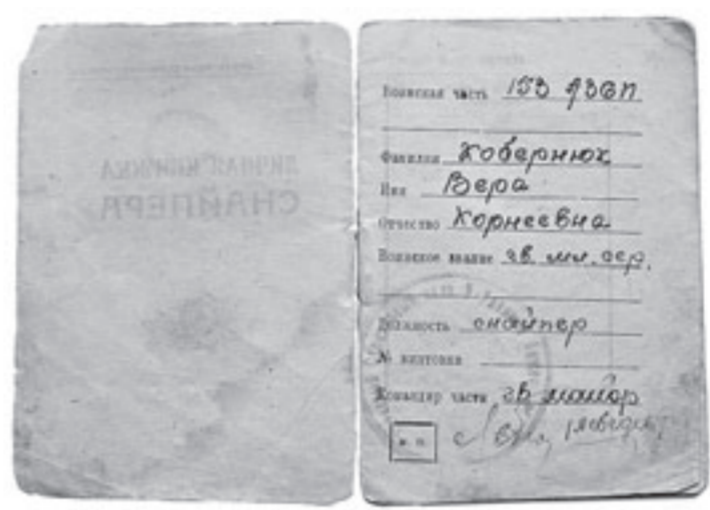 ЛИЧНАЯ КНИЖКА
СНАЙПЕРА
Воинская часть 153 АЗСП
Фамилия Кобернюк
Имя Вера
Отчество Корнеевна
Воинское звание гв. мл. сер.
Должность снайпер
№ винтовки
Командир части гв майор
м. п.